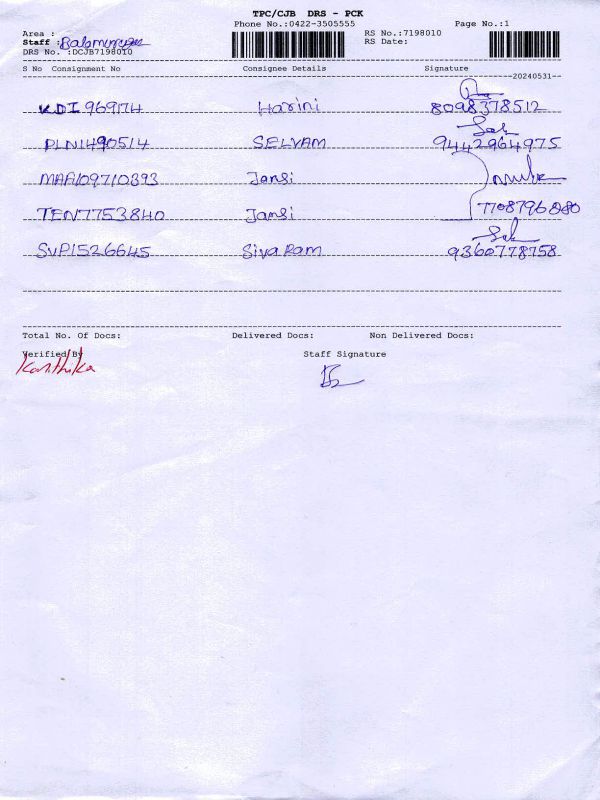 TPC/CJB DRS - PCK
Phone No.:0422-3505555 Page No.:1
Area :
Staff : RS No.:7198010
DRS No. :DCJB7198010 RS Date:
S No Consignment No Consignee Details Signature
20240531
KDI 969174 Harini 8098378512
PLN1490514 SELVAM 9442964975
MAA109710393 Jansi
TEN7753840 Jansi 7708796880
SVP1526645 Siva Ram 9360778758
Total No. Of Docs: Delivered Docs: Non Delivered Docs:
Verified By Staff Signature
Karthika